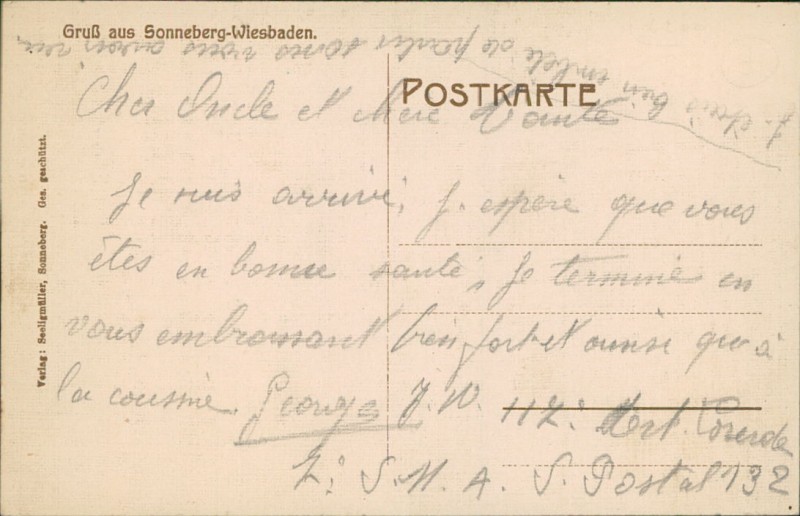 Gruß aus Sonneberg-Wiesbaden.
J. étais bien embêté de partir sans vous avoir vu
POSTKARTE
Cher Oncle et Mère
Je suis arrivé, J. espère que vous
êtes en bonne santé, Je termine en
vous embrassant bien fort et ainsi qu'à
la cousine. Georges J. W. 112e Art. Lourde
Z: S. M. A. S. Postal 132
Verlag: Seeligmüller, Sonneberg. Ges. geschützt.